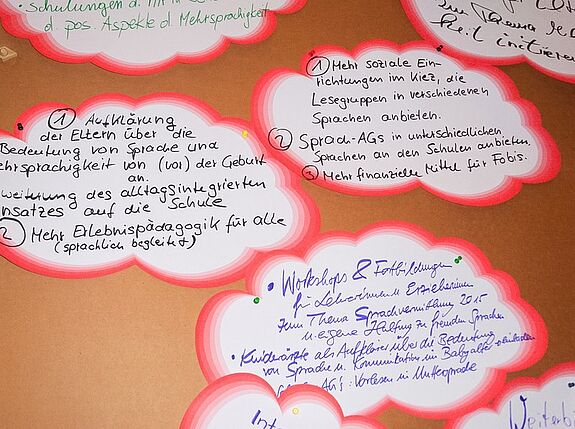 • Schulungen d.
d. pos. Aspekte d. Mehrsprachigkeit
① Mehr soziale Ein-
richtungen im Kiez, die
Lesegruppen in verschiedenen
Sprachen anbieten.
② Sprach-AGs in unterschiedlichen
Sprachen an den Schulen anbieten.
③ Mehr finanzielle Mittel für Fobis.
① Aufklärung
der Eltern über die
Bedeutung von Sprache und
ehrsprachigkeit von (vor) der Geburt
an.
weiterung des alltagsintegrierten
nsatzes auf die Schule
② Mehr Erlebnispädagogik für alle
(sprachlich begleitet)
• Workshops & Fortbildungen
für Lehrerinnen u. Erzieherinnen
zum Thema Sprachvermittlung 2015
u. eigene Haltung zu fremden Sprachen
• Kinderärzte als Aufklärer über die Bedeutung
von Sprache u. Kommunikation im Babyalter
AG's: Vorlesen in Muttersprache
Weiterbi